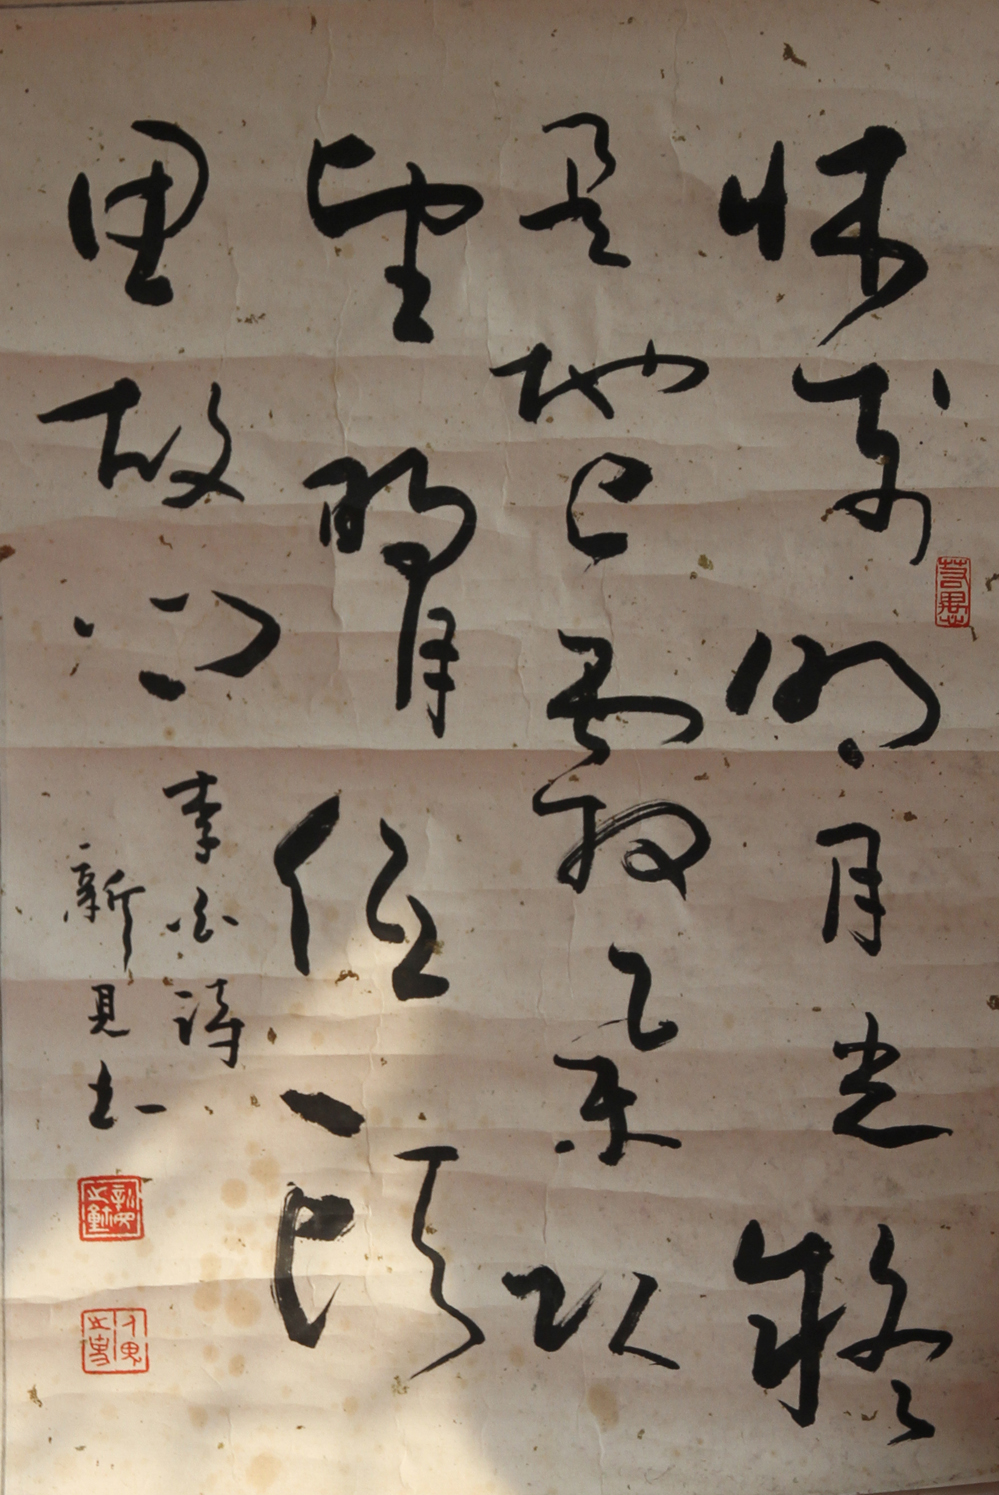 牀前明月光疑
是地上霜舉頭
望明月低頭
思故鄉
李白詩
新見书